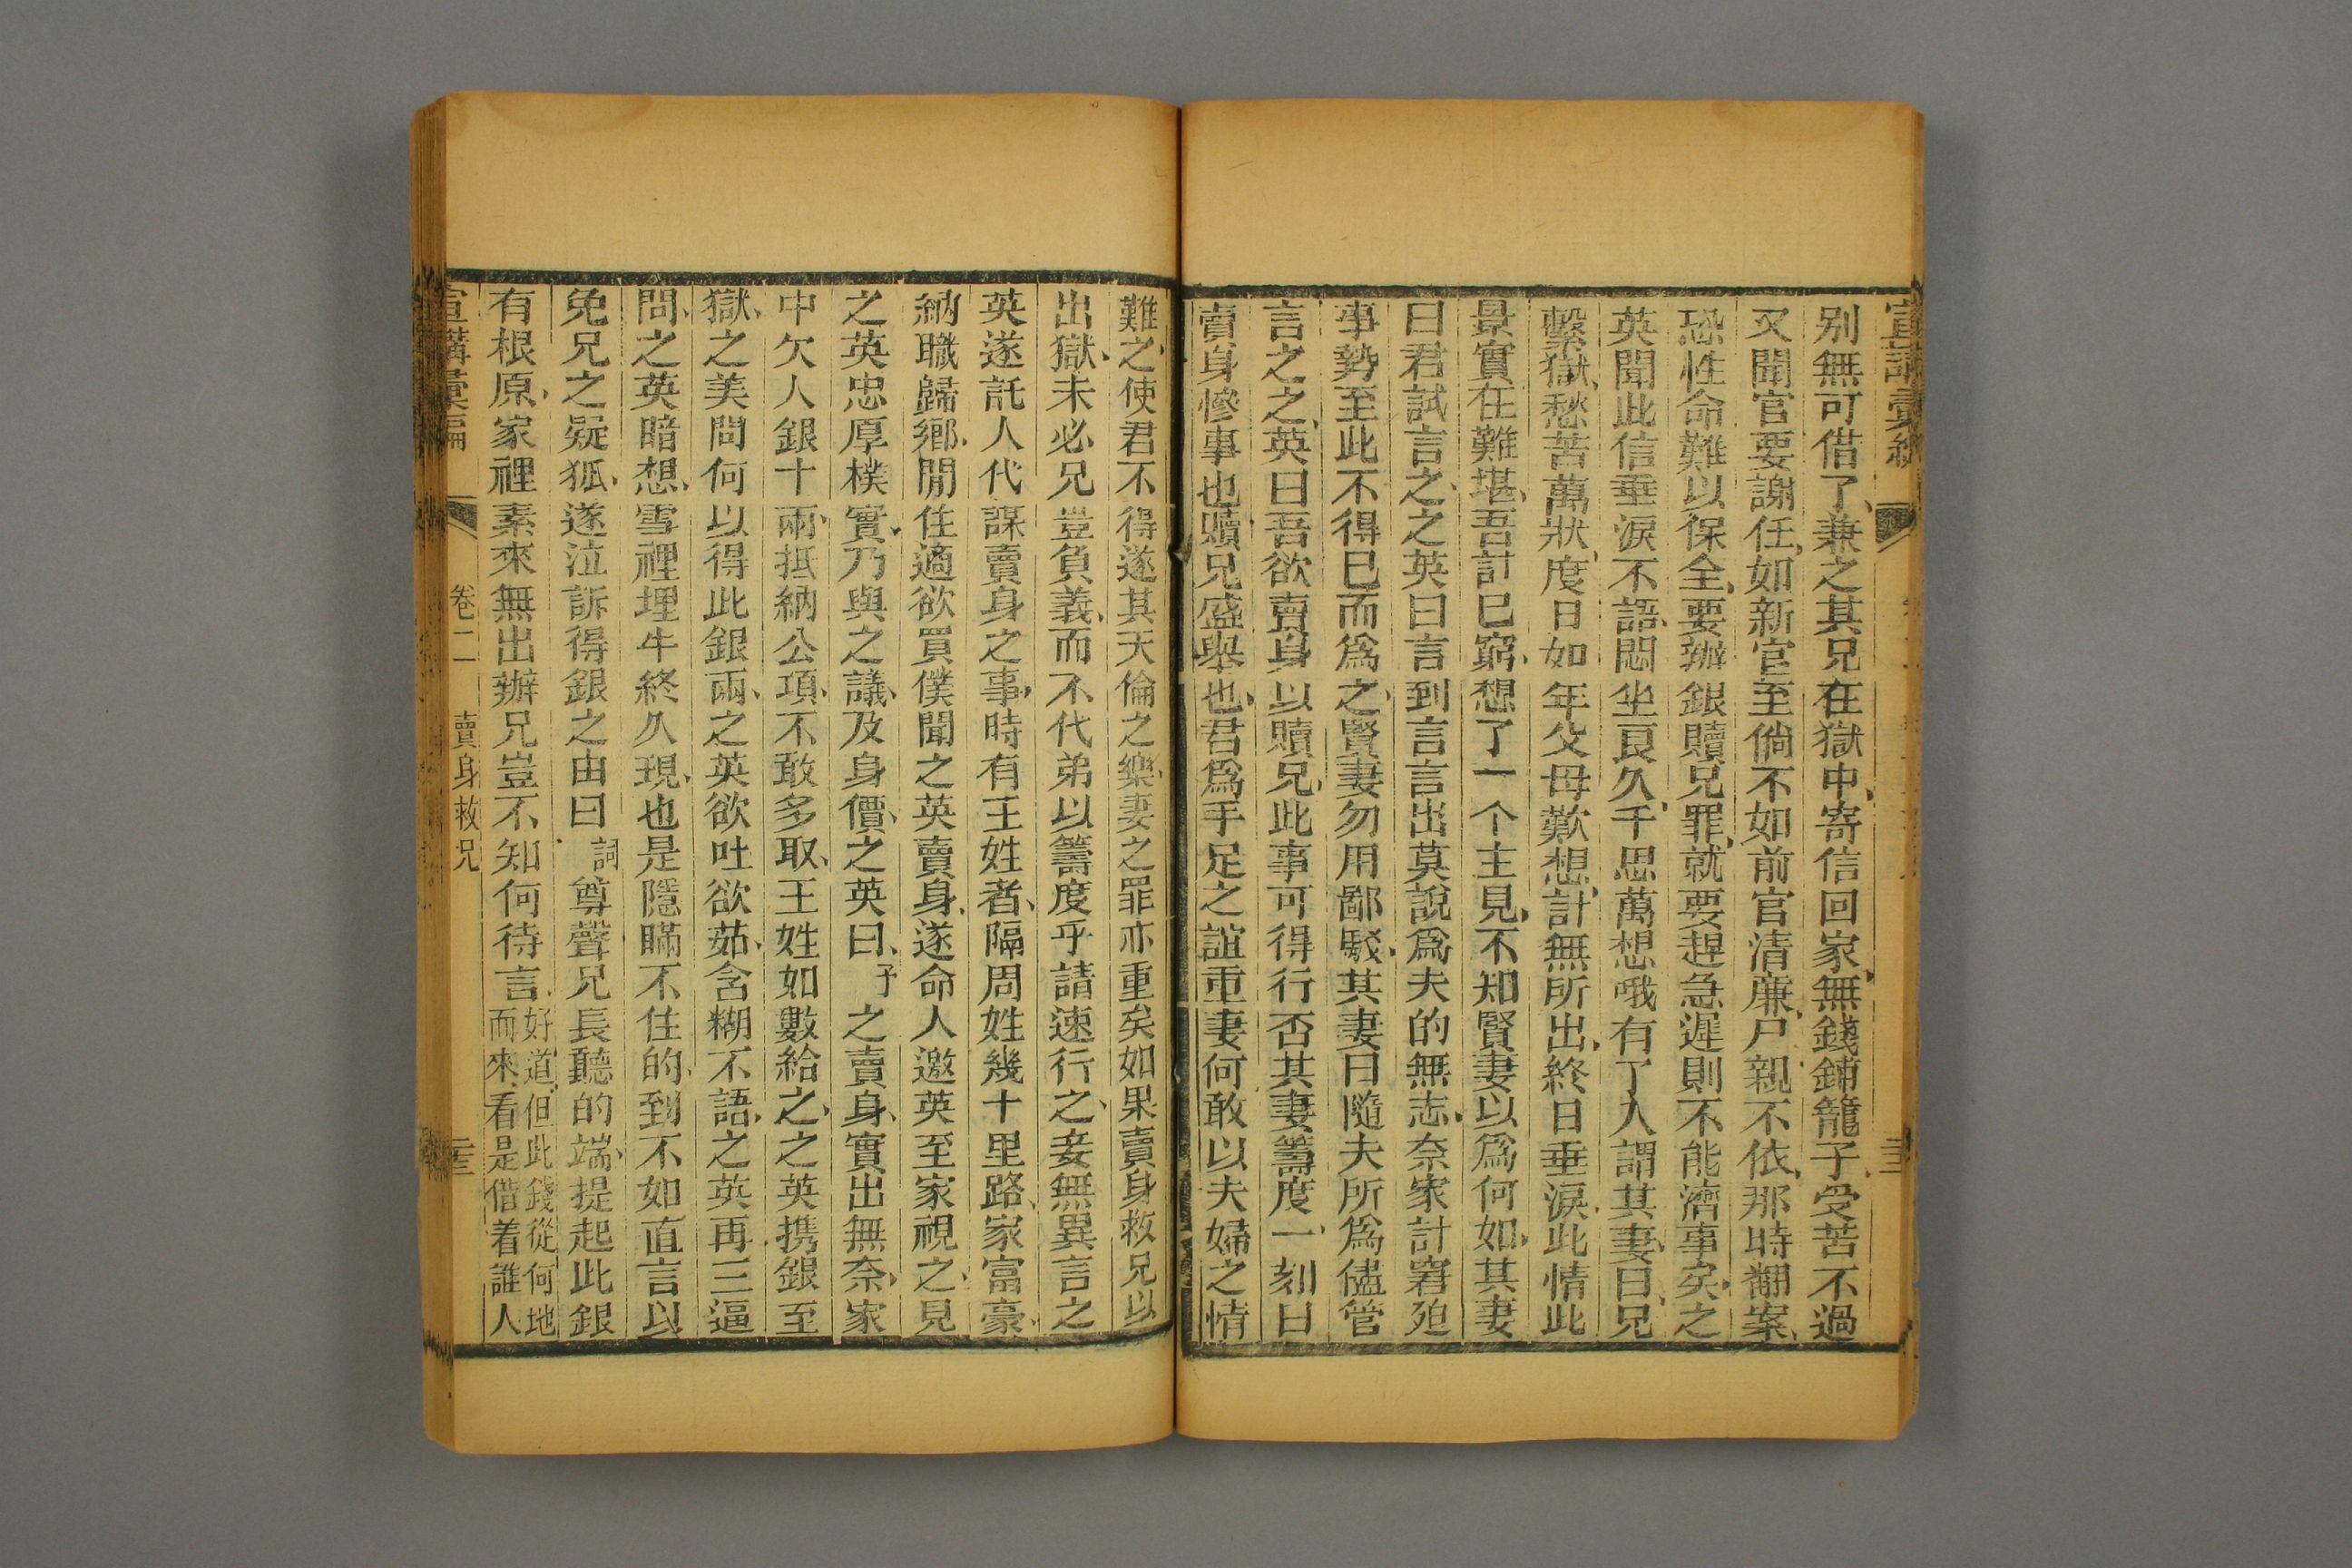 宣講彙編
别無可借了、兼之其兄在獄中、寄信回家、無錢鋪籠子、受苦不過
又聞官要謝任、如新官至倘不如前官清廉、尸親不依、那時翻案、
恐性命難以保全、要辦銀贖兄罪、就要趕急遲則不能濟事矣、之
英聞此信垂淚不語、悶坐良久、千思萬想哦有了人謂其妻曰、兄
繫獄、愁苦萬狀、度日如年父母歎想、計無所出、終日垂淚、此情此
景實在難堪、吾計已窮、想了一个主見、不知賢妻以爲何如、其妻
曰君試言之、之英曰言到言言出莫說爲夫的無志、奈家計窘廹
事勢至此不得已而爲之、賢妻勿用鄙駁、其妻曰隨夫所爲儘管
言之、之英曰吾欲賣身以贖兄、此事可得行否其妻籌度一刻曰
賣身慘事也、贖兄盛舉也、君爲手足之誼重妻何敢以夫婦之情
難之、使君不得遂其天倫之樂、妻之罪亦重矣如果賣身救兄以
出獄、未必兄豈負義、而不代弟以籌度乎請速行之、妾無異言之
英遂託人代謀賣身之事、時有王姓者、隔周姓幾十里路、家富豪、
納職歸鄉、閒住適欲買僕聞之英賣身、遂命人邀英至家視之、見
之英忠厚樸實、乃與之議、及身價、之英曰、予之賣身、實出無奈、家
中欠人銀十兩、抵納公項、不敢多取、王姓如數給之、之英携銀至
獄、之美問何以得此銀兩、之英欲吐欲茹、含糊不語、之英再三逼
問、之英暗想、雪裡埋牛終久現、也是隱瞞不住的、到不如直言以
免兄之疑狐、遂泣訴得銀之由曰、詞尊聲兄長聽的端、提起此銀
有根原、家裡素來無出辦兄豈不知何待言、好道、但此錢從何地而來、看是借着誰人
宣講彙編 卷二 賣身救兄 二十三